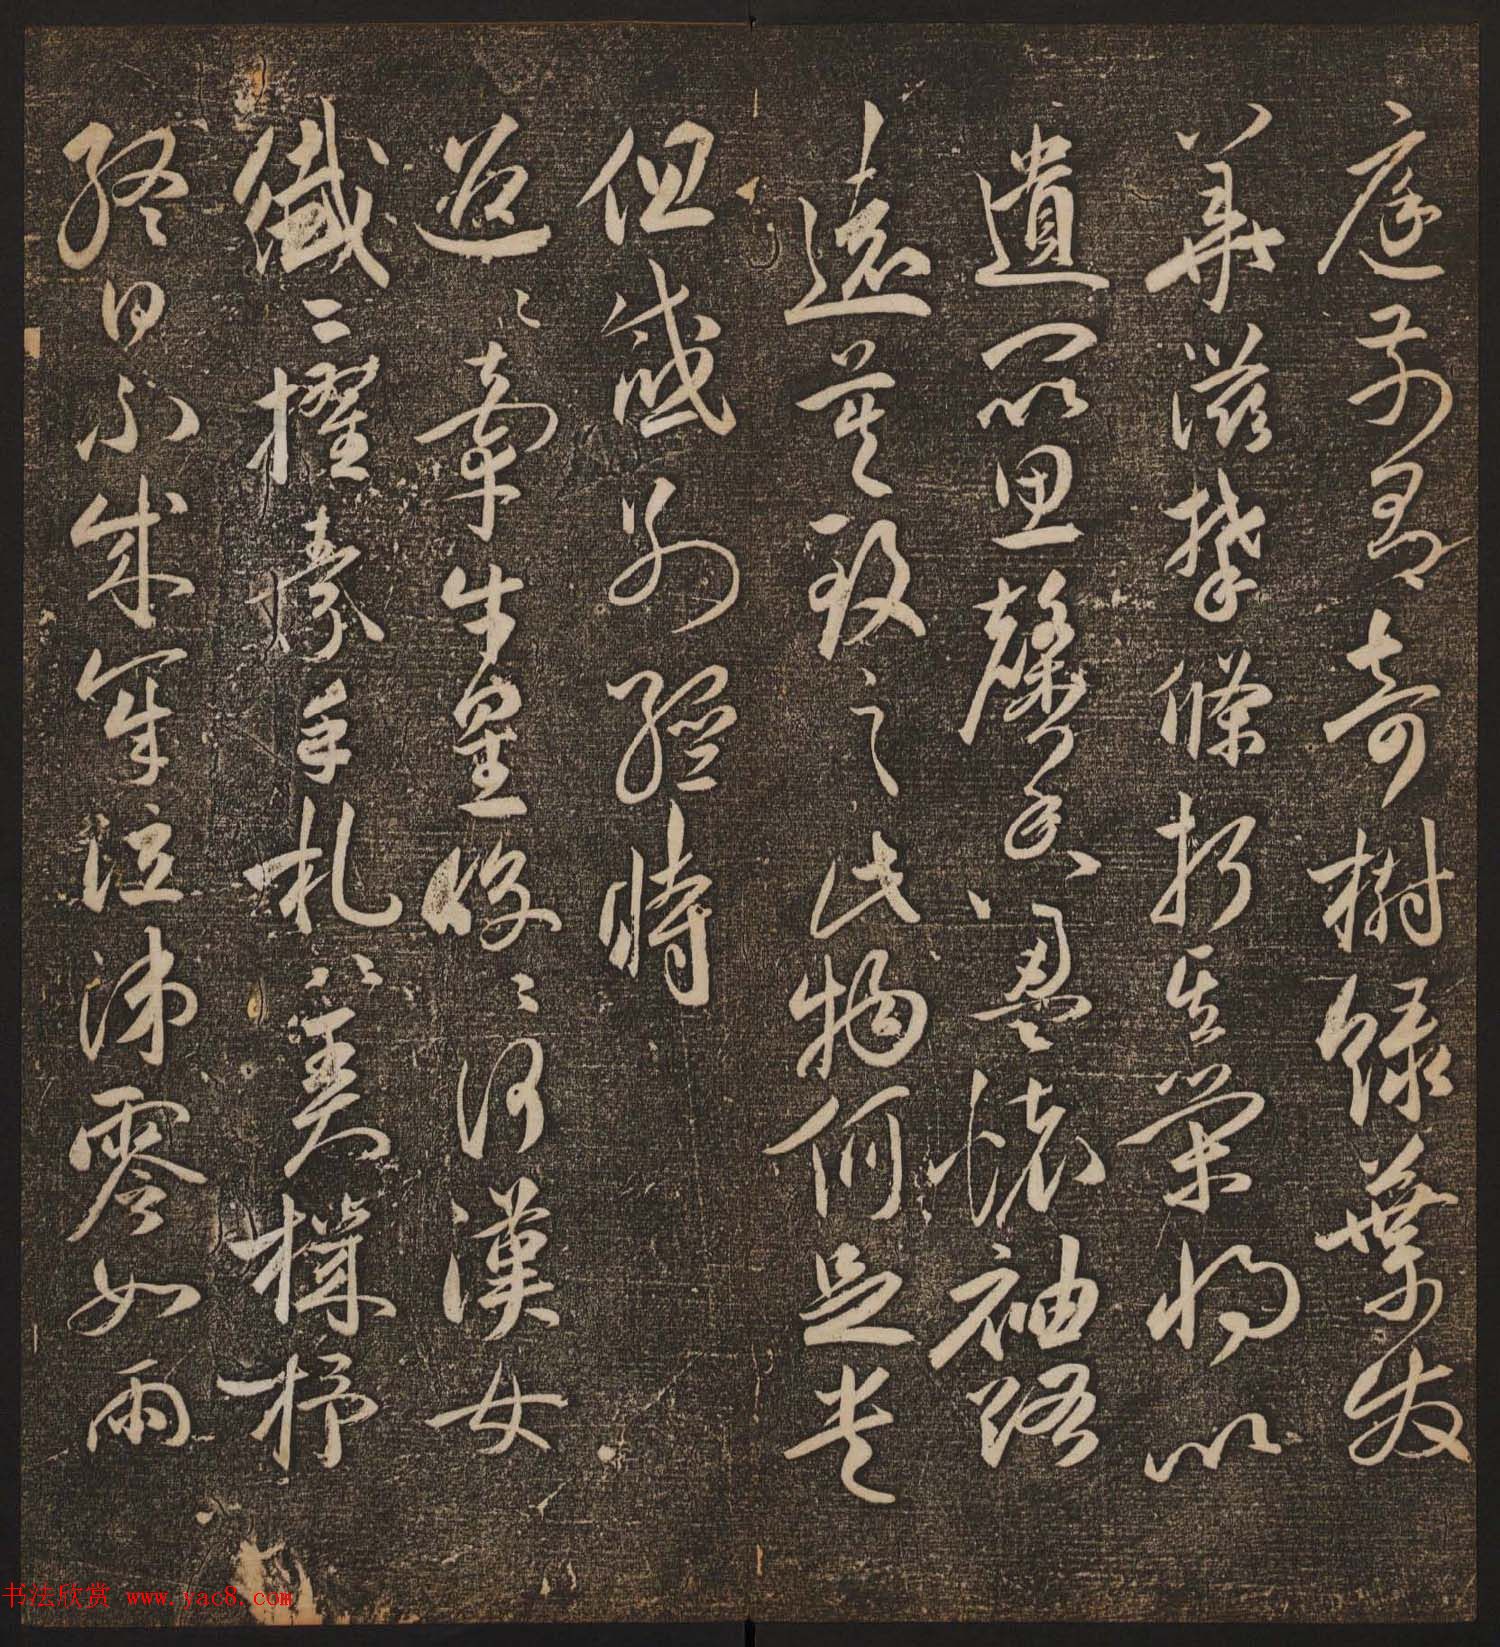 庭前有奇樹綠葉發
華滋攀條折其榮將以
遺所思馨香盈懷袖路
遠莫致之此物何足貴
但感別經時
迢〻牽牛星皎〻河漢女
纖〻擢素手札〻弄機杼
終日不成章泣涕零如雨
书法欣赏 www.yac8.com